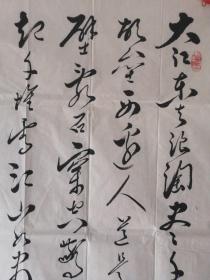 大江东去浪淘尽千
故垒西边人道是
壁乱石穿空惊
起千堆雪江山如画